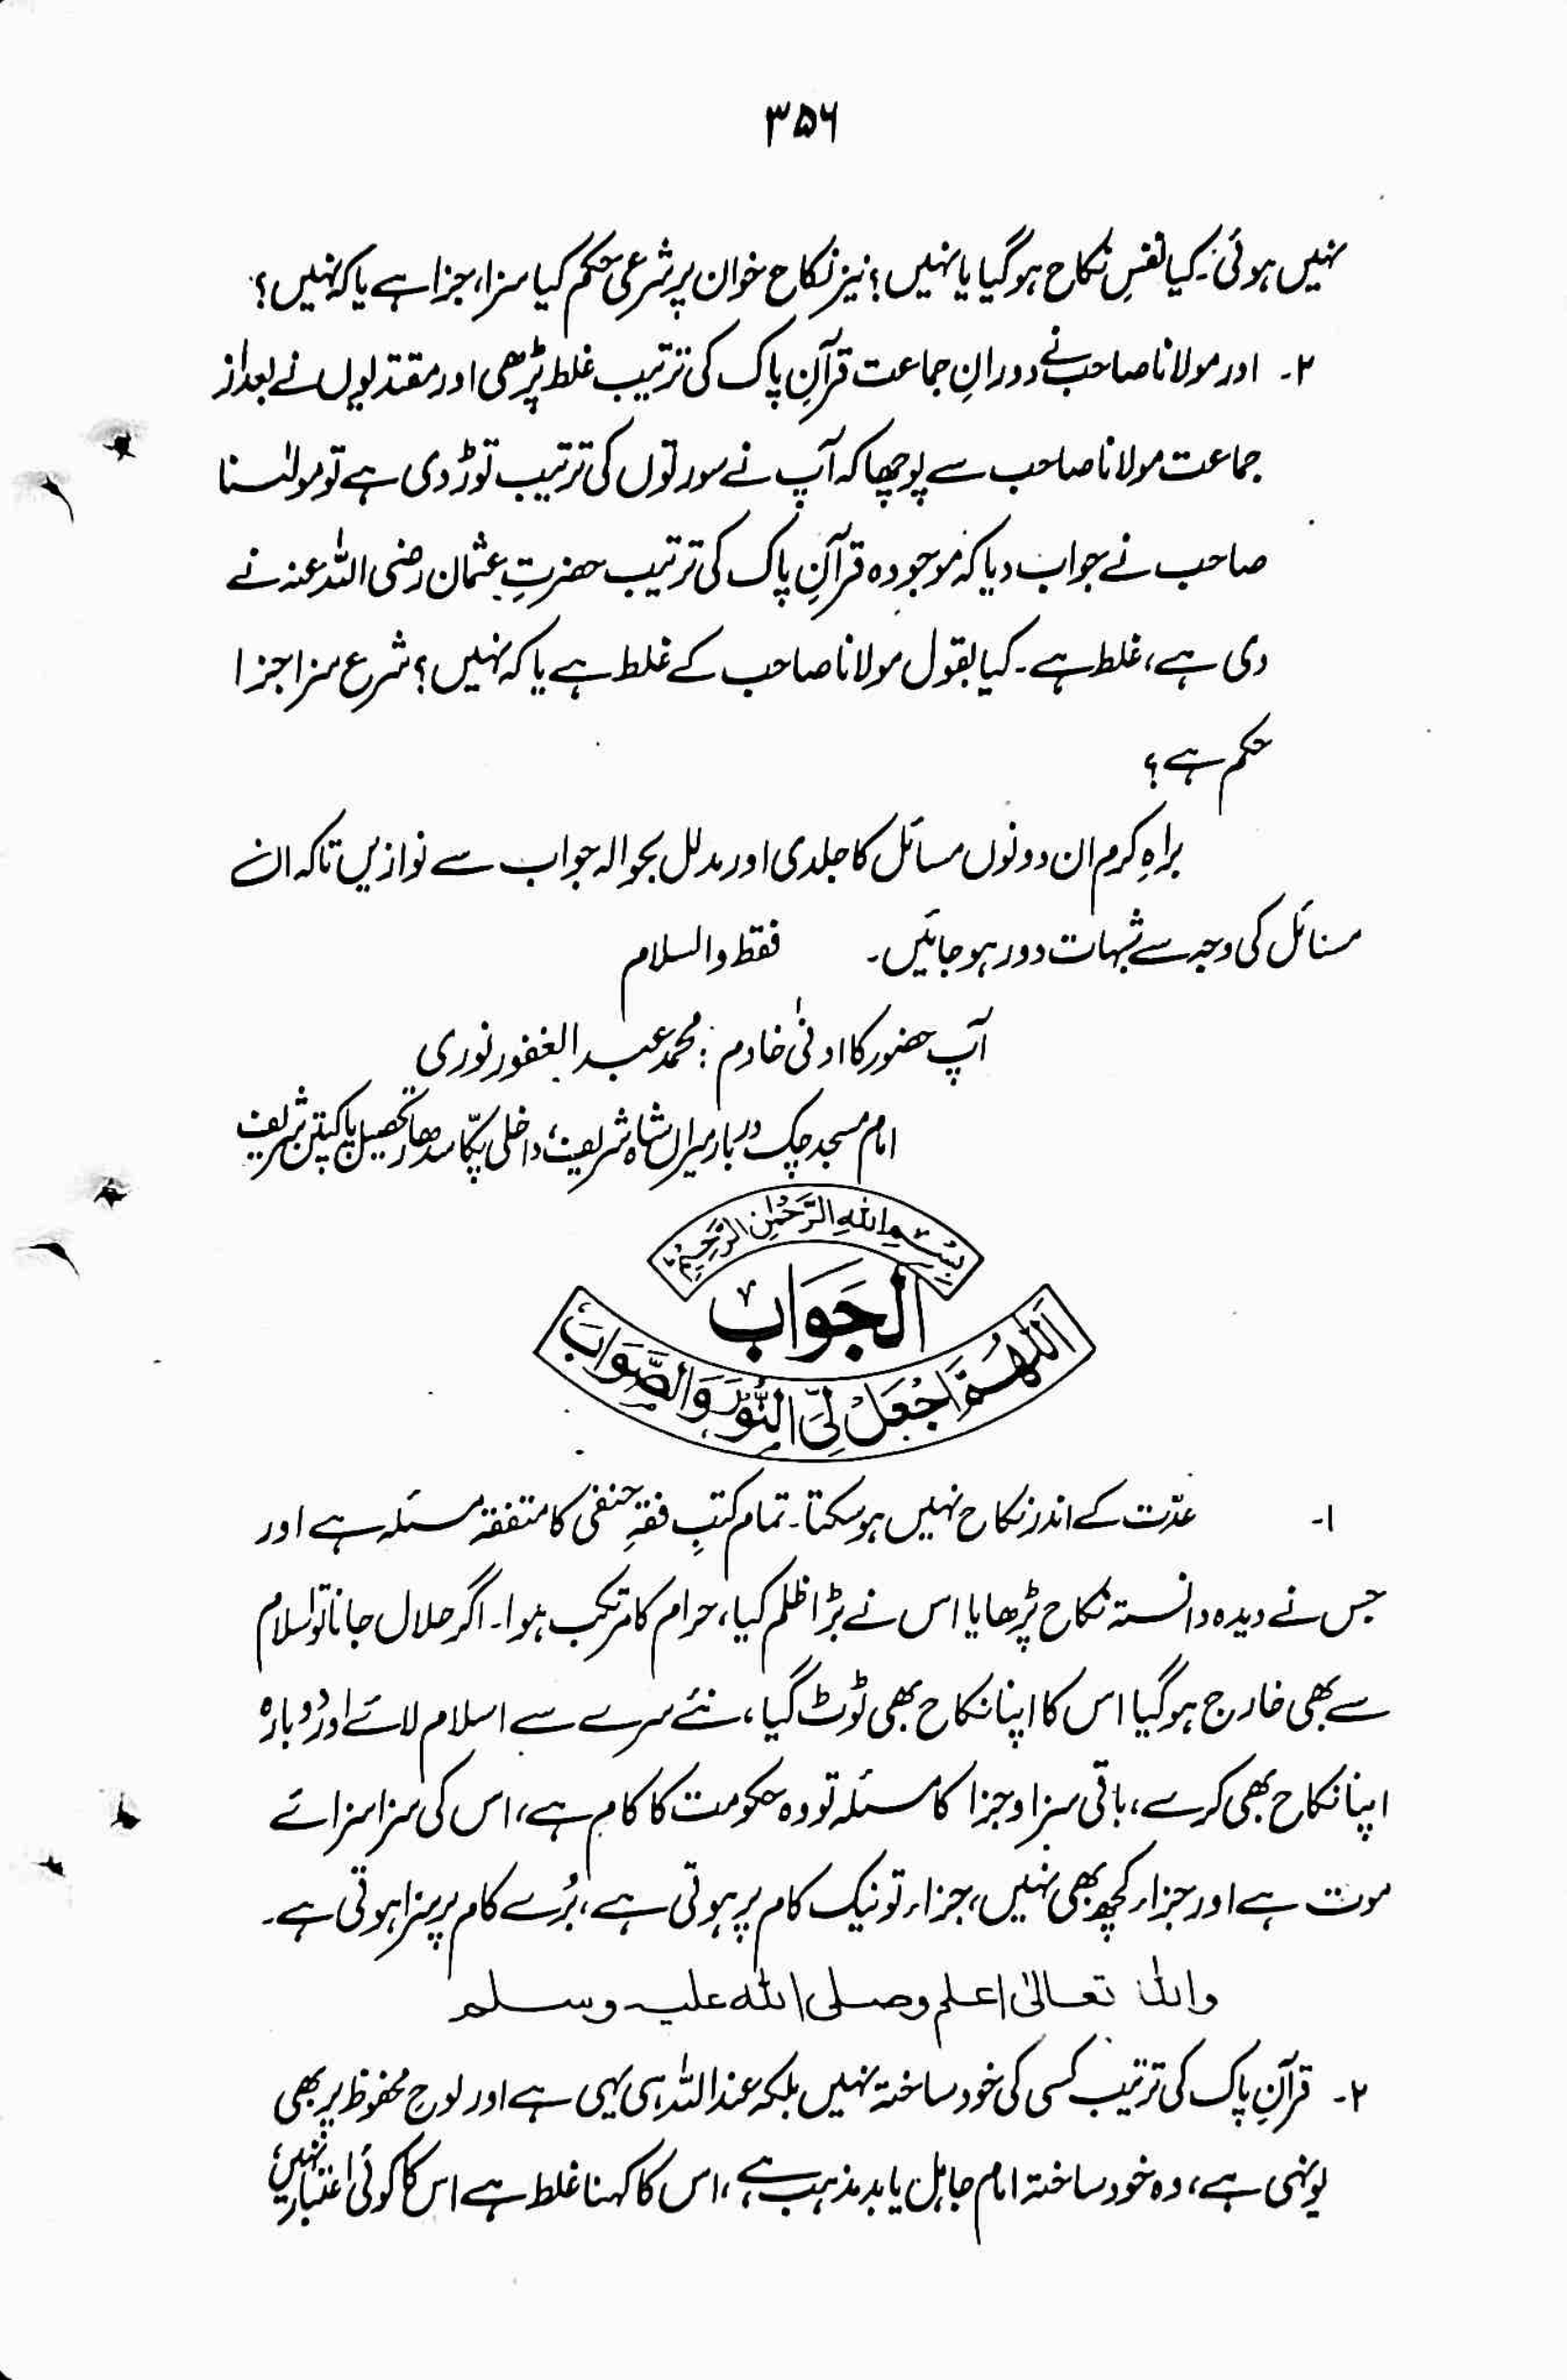 ۳۵۶
نہیں ہوئی۔ کیا نفسِ نکاح ہوگیا یا نہیں؟ نیز نکاح خوان پر شرعی حکم کیا سزا، جزا ہے یا کہ نہیں؟
۲۔ اور مولانا صاحب نے دورانِ جماعت قرآنِ پاک کی ترتیب غلط پڑھی اور مقتدیوں نے بعد از
جماعت مولانا صاحب سے پوچھا کہ آپ نے سورتوں کی ترتیب توڑ دی ہے تو مولٰنا
صاحب نے جواب دیا کہ موجودہ قرآنِ پاک کی ترتیب حضرتِ عثمان رضی اللہ عنہ نے
دی ہے، غلط ہے۔ کیا بقول مولانا صاحب کے غلط ہے یا کہ نہیں؟ شرع سزا جزا
حکم ہے؟
براہِ کرم ان دونوں مسائل کا جلدی اور مدلل بحوالہ جواب سے نوازیں تاکہ ان
مسائل کی وجہ سے شبہات دور ہو جائیں۔ فقط والسلام
آپ حضور کا ادنیٰ خادم : محمد عبد الغفور نوری
امام مسجد چک دربار میراں شاہ شریف، داخلی پکّا سدھار تحصیل پاکپتن شریف
بِسْمِ اللهِ الرَّحْمٰنِ الرَّحِيْمِ
الجَوَاب
اَللّٰهُمَّ اجْعَلْ لِّيَ النُّوْرَ وَالصَّوَابَ
۱۔ عدّت کے اندر نکاح نہیں ہو سکتا۔ تمام کتبِ فقہِ حنفی کا متفقہ مسئلہ ہے اور
جس نے دیدہ دانستہ نکاح پڑھایا اس نے بڑا ظلم کیا، حرام کا مرتکب ہوا۔ اگر حلال جانا تو اسلام
سے بھی خارج ہوگیا اس کا اپنا نکاح بھی ٹوٹ گیا، نئے سرے سے اسلام لائے اور دُوبارہ
اپنا نکاح بھی کرے، باقی سزا و جزا کا مسئلہ تو وہ حکومت کا کام ہے، اس کی سزا سزائے
موت ہے اور جزاء کچھ بھی نہیں، جزاء تو نیک کام پر ہوتی ہے، بُرے کام پر سزا ہوتی ہے۔
واللہ تعالیٰ اعلم وصلی اللہ علیہ وسلم
۲۔ قرآنِ پاک کی ترتیب کسی کی خود ساختہ نہیں بلکہ عند اللہ ہی یہی ہے اور لوح محفوظ پر بھی
یونہی ہے، وہ خود ساختہ امام جاہل یا بد مذہب ہے، اس کا کہنا غلط ہے اس کا کوئی اعتبار نہیں،